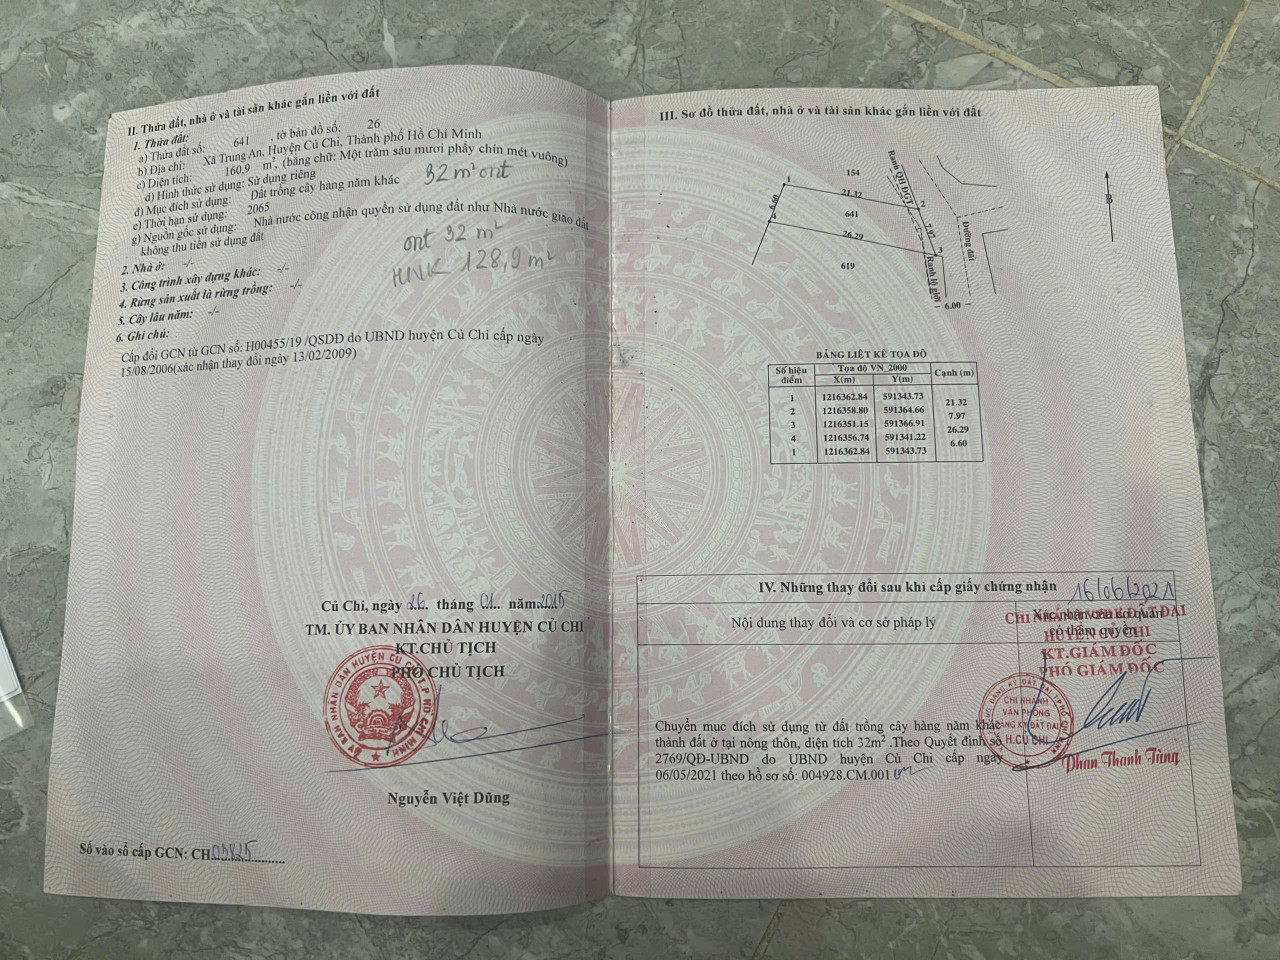 II. Thửa đất, nhà ở và tài sản khác gắn liền với đất
1. Thửa đất:
a) Thửa đất số: 641 , tờ bản đồ số: 26
b) Địa chỉ: Xã Trung An, Huyện Củ Chi, Thành phố Hồ Chí Minh
c) Diện tích: 160,9 m², (bằng chữ: Một trăm sáu mươi phẩy chín mét vuông)
d) Hình thức sử dụng: Sử dụng riêng
đ) Mục đích sử dụng: Đất trồng cây hàng năm khác 32 m² ont
e) Thời hạn sử dụng: 2065
g) Nguồn gốc sử dụng: Nhà nước công nhận quyền sử dụng đất như Nhà nước giao đất
không thu tiền sử dụng đất
ont 32 m²
HNK 128,9 m²
2. Nhà ở: -/-
3. Công trình xây dựng khác: -/-
4. Rừng sản xuất là rừng trồng: -/-
5. Cây lâu năm: -/-
6. Ghi chú:
Cấp đổi GCN từ GCN số: H00455/19 /QSDĐ do UBND huyện Củ Chi cấp ngày
15/08/2006(xác nhận thay đổi ngày 13/02/2009)
Củ Chi, ngày 26. tháng 01.. năm 2015
TM. ỦY BAN NHÂN DÂN HUYỆN CỦ CHI
KT.CHỦ TỊCH
PHÓ CHỦ TỊCH
Nguyễn Việt Dũng
Số vào sổ cấp GCN: CH03825
III. Sơ đồ thửa đất, nhà ở và tài sản khác gắn liền với đất
154
1
21.32
2
6.60
4
641
7.97
26.29
3
619
Ranh QH ĐGT
Đường đất
Ranh lộ giới
6.00
B
BẢNG LIỆT KÊ TỌA ĐỘ
Số hiệu điểm Tọa độ VN_2000 Cạnh (m)
X(m) Y(m)
1 1216362.84 591343.73
21.32
2 1216358.80 591364.66
7.97
3 1216351.15 591366.91
26.29
4 1216356.74 591341.22
6.60
1 1216362.84 591343.73
IV. Những thay đổi sau khi cấp giấy chứng nhận
16/06/2021
Nội dung thay đổi và cơ sở pháp lý
Xác nhận của cơ quan
có thẩm quyền
CHI NHÁNH VPĐK ĐẤT ĐAI
HUYỆN CỦ CHI
KT.GIÁM ĐỐC
PHÓ GIÁM ĐỐC
CHI NHÁNH
VĂN PHÒNG
ĐĂNG KÝ ĐẤT ĐAI
H.CỦ CHI
Chuyển mục đích sử dụng từ đất trồng cây hàng năm khác
thành đất ở tại nông thôn, diện tích 32m² .Theo Quyết định số
2769/QĐ-UBND do UBND huyện Củ Chi cấp ngày
06/05/2021 theo hồ sơ số: 004928.CM.001
Phan Thanh Tùng